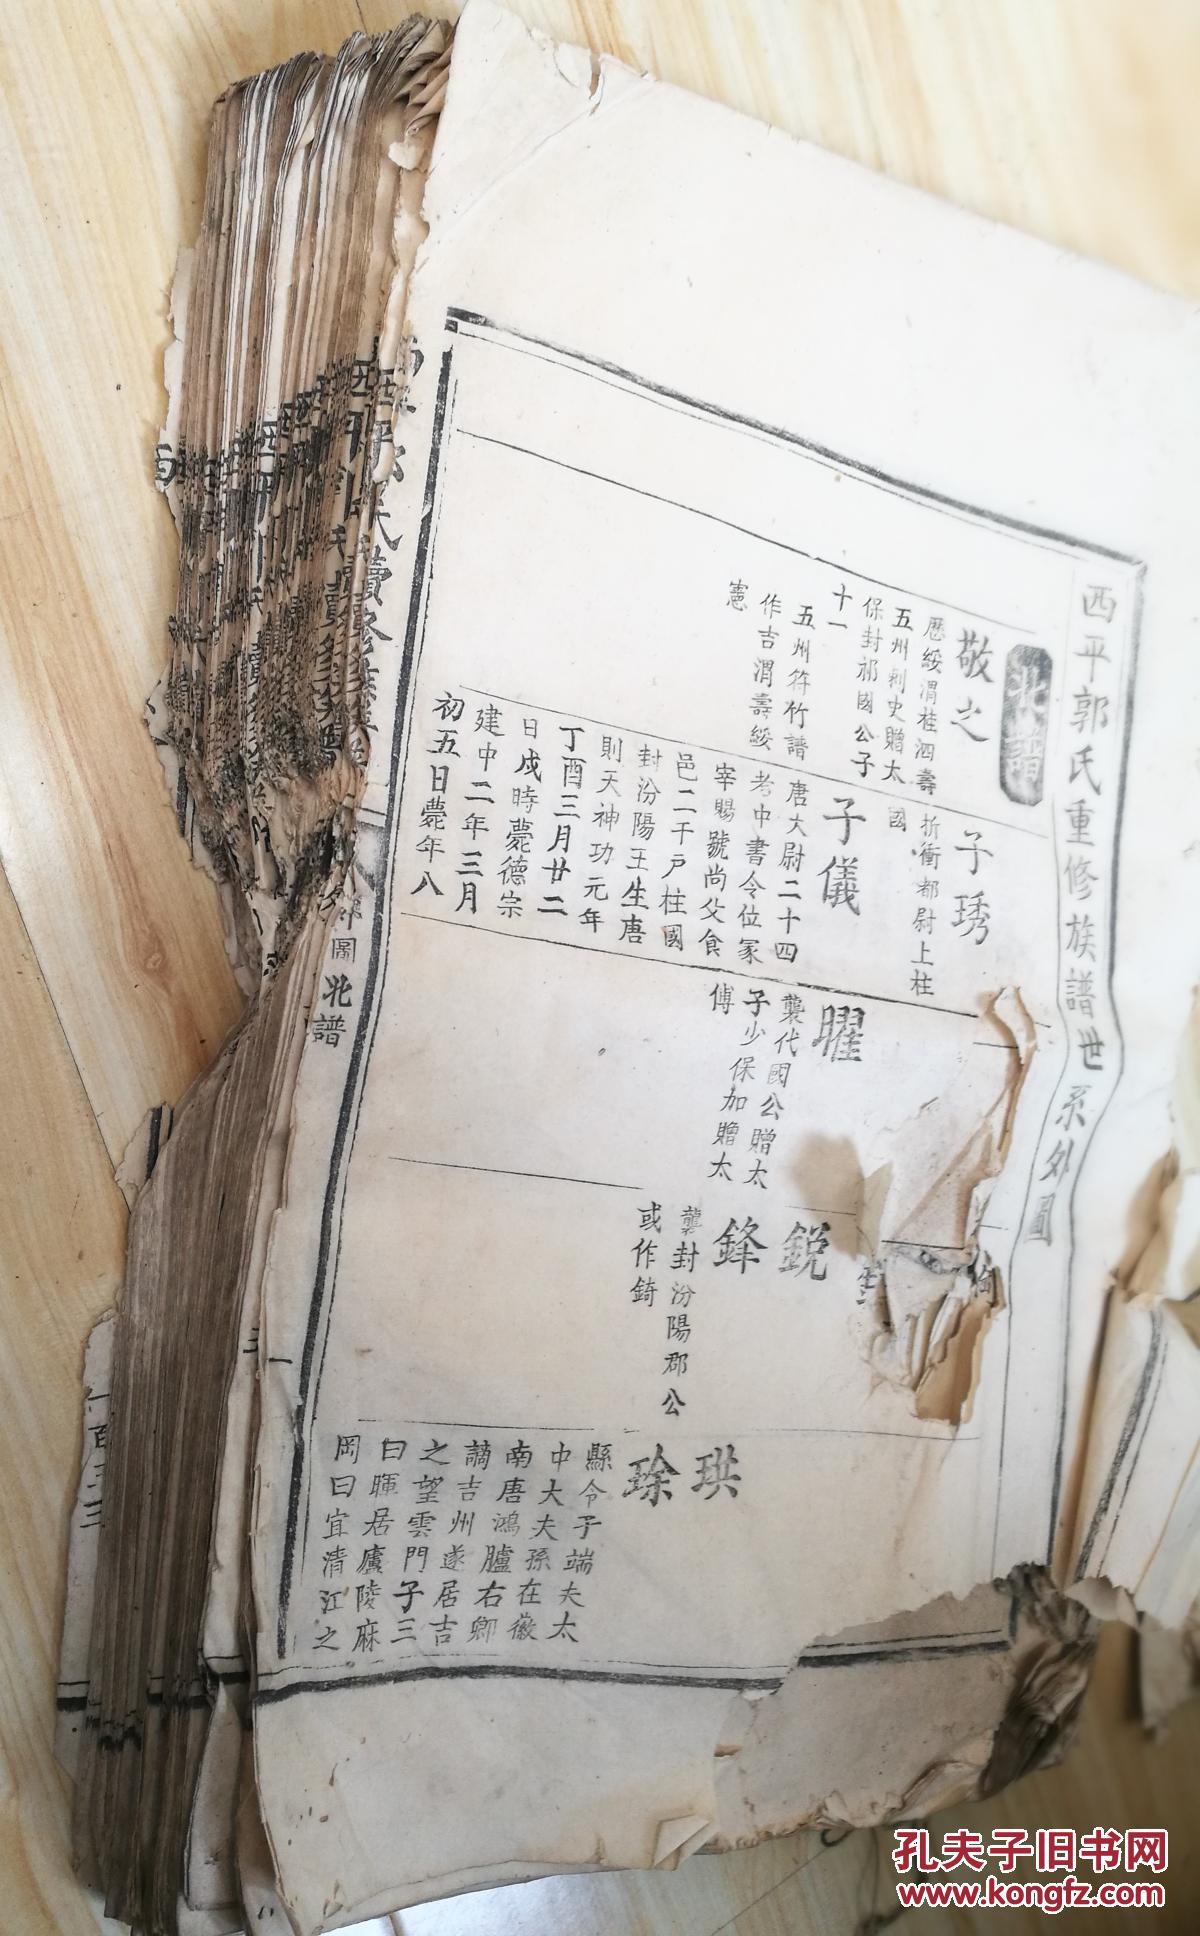 西平郭氏重修族譜世系外圖
北譜
敬之
歷綏渭桂泗壽
五州刺史贈太
保封祁國公子
十一
五州符竹譜
作吉渭壽綏
憲
子琇
折衝都尉上柱
國
子儀
唐大尉二十四
考中書令位冢
宰賜號尚父食
邑二千戶柱國
封汾陽王生唐
則天神功元年
丁酉三月廿二
日戌時薨德宗
建中二年三月
初五日薨年八
曜
襲代國公贈太
子少保加贈太
傅
銳
鋒
襲封汾陽郡公
或作錡
珙
琮
縣令子端夫太
中大夫孫在徽
南唐鴻臚右卿
謫吉州遂居吉
之望雲門子三
曰暉居廬陵麻
岡曰宜清江之
氏續修族
外圖 北譜
一
孔夫子旧书网
www.kongfz.com